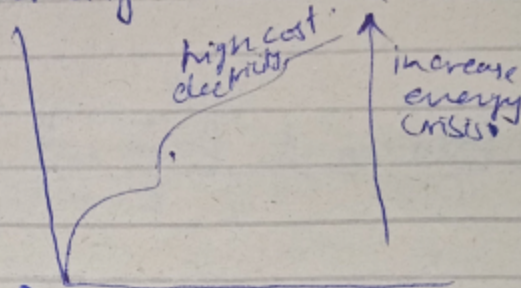 high cost
electricity
increase
energy
crisis